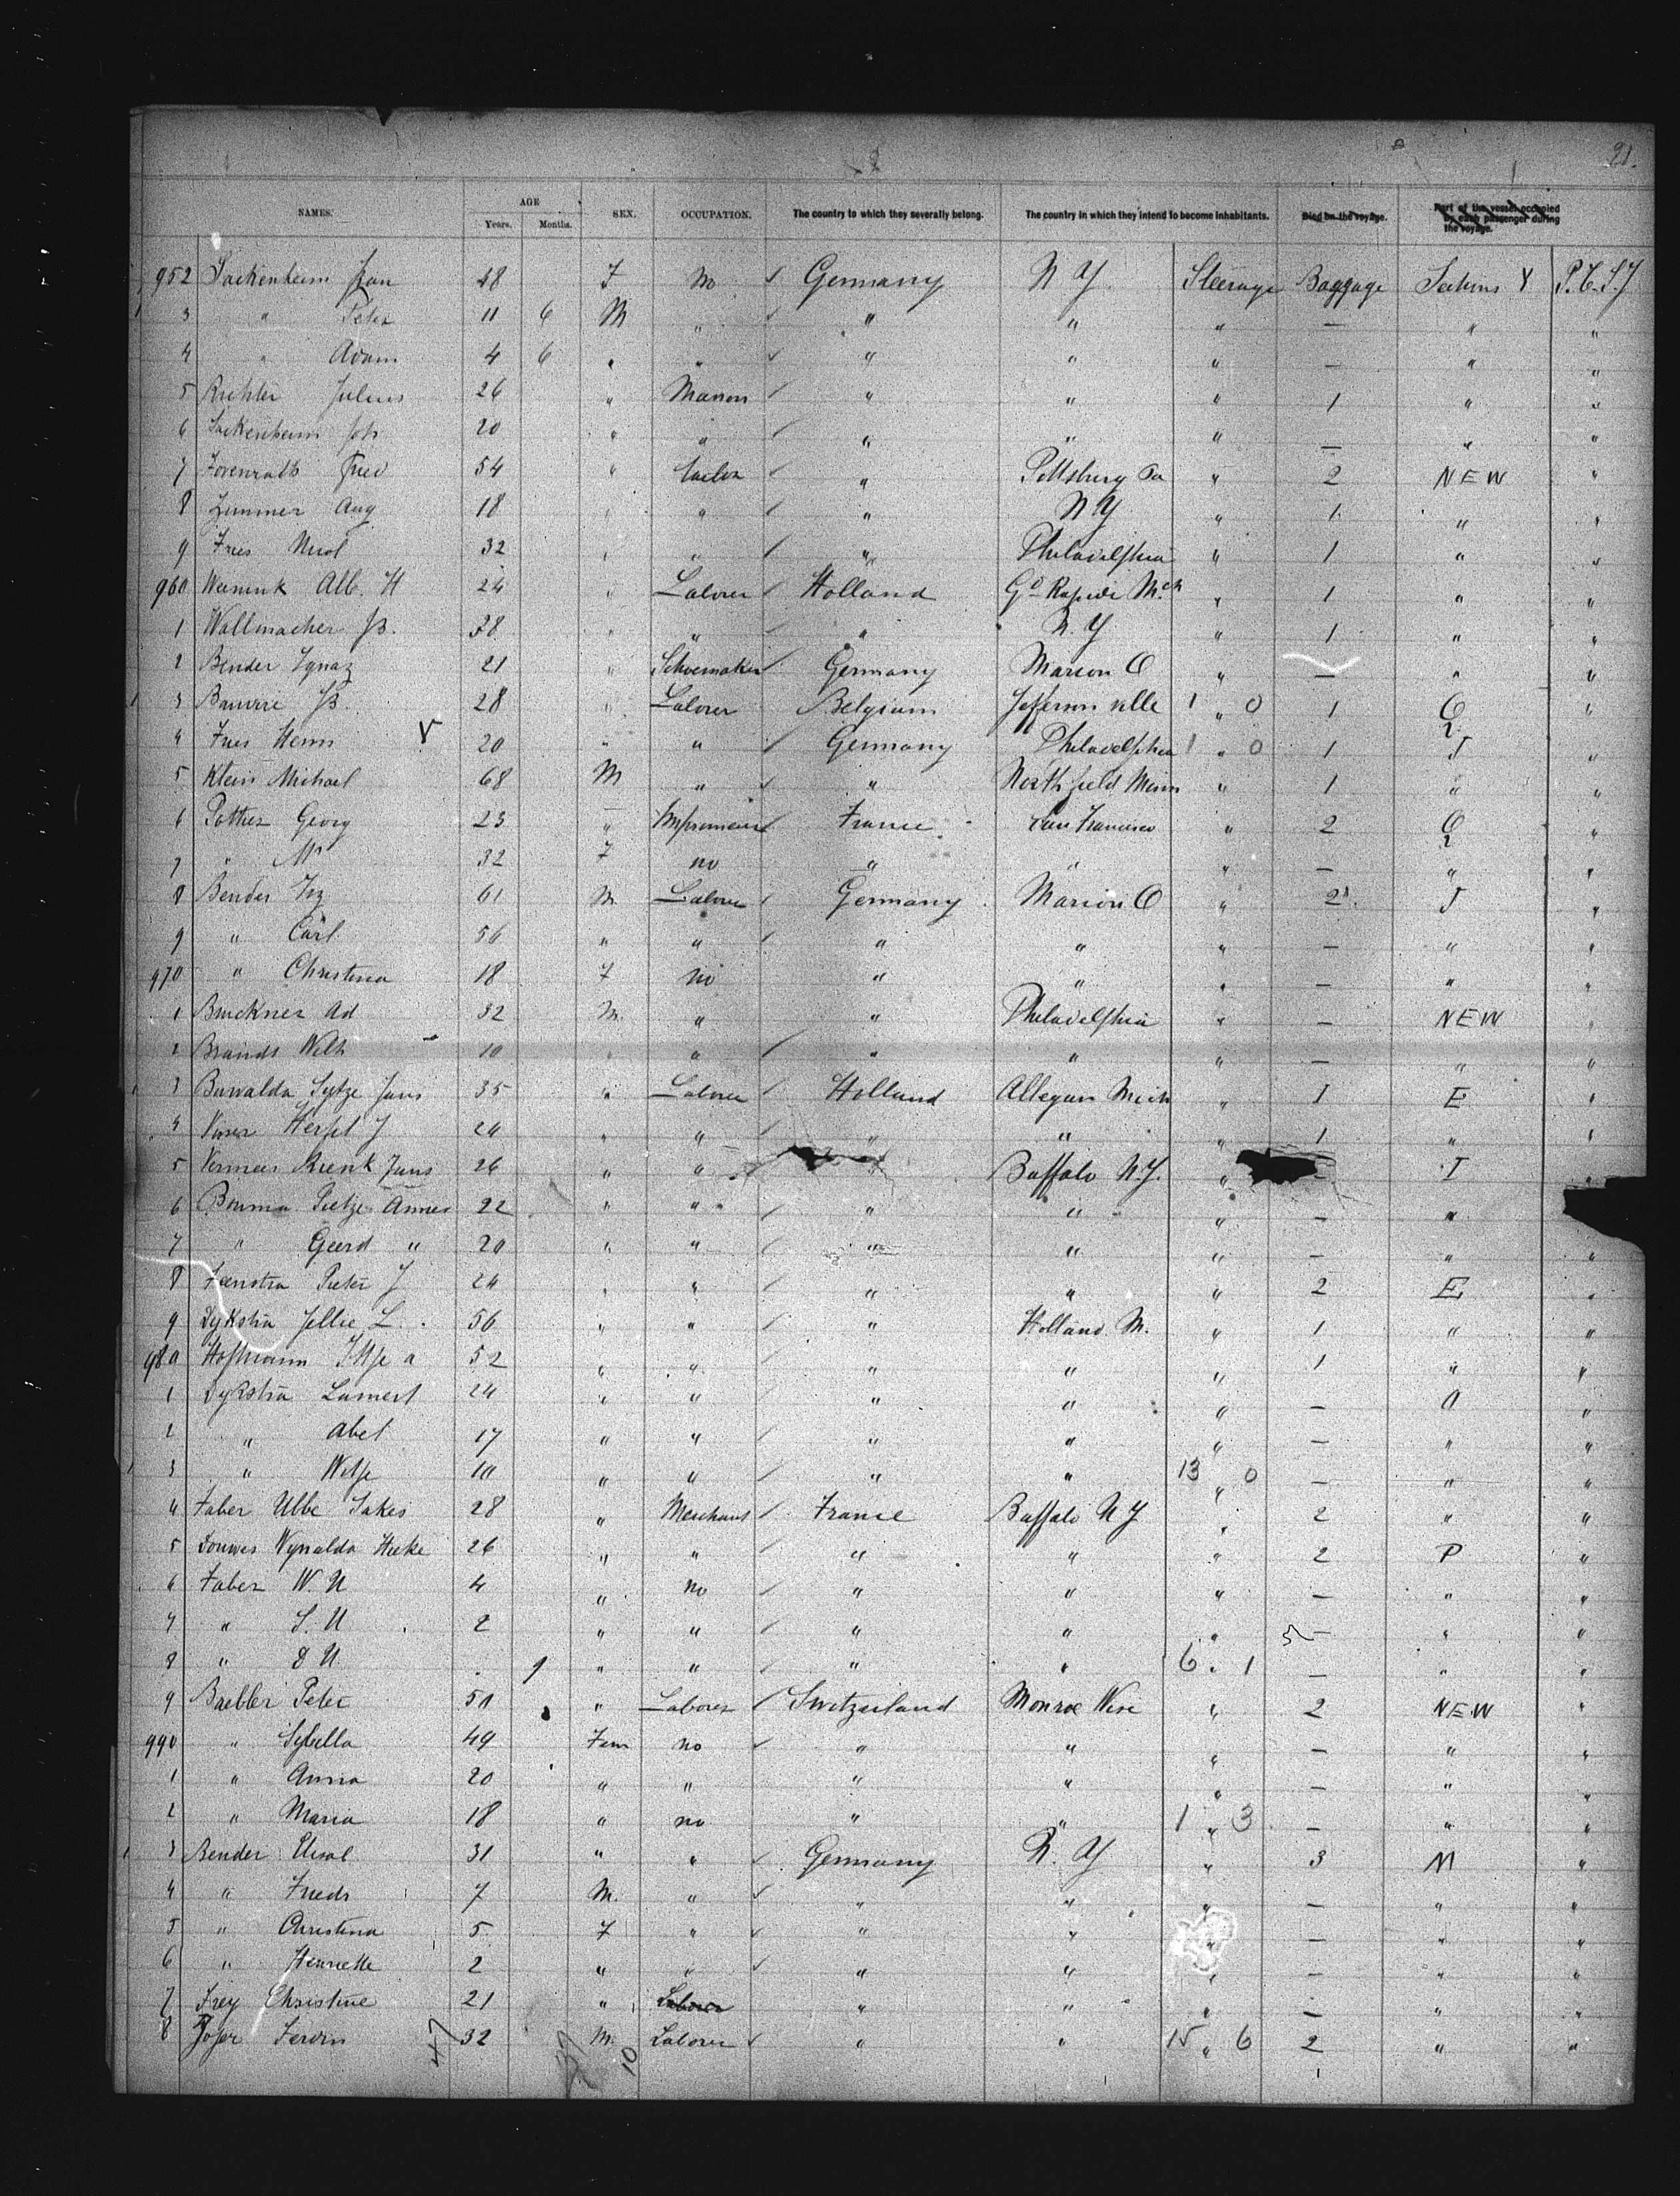 21.
NAMES. AGE SEX. OCCUPATION. The country to which they severally belong. The country in which they intend to become inhabitants. Died on the voyage. Part of the vessel occupied by each passenger during the voyage.
Years. Months.
952 Sackenheim 48 F no Germany N Y Steerage Baggage P.C.S.Y
3 " Peter 11 6 M " " " " — " "
4 " Adam 4 6 " " " " " — " "
5 Richter Julius 26 " Mason " " " 1 " "
6 Sackenheim Joh 20 " " " " " — " "
7 Fred 54 " tailor " Pittsburg Pa " 2 NEW "
8 Zimmer Aug 18 " " " N Y " 1 " "
9 Fries Nicol 32 " " " Philadelphia " 1 " "
960 Alb. H 24 " Laborer Holland Gd Rapids Mch " 1 " "
1 Wallmacher 28 " " " N. Y " 1 " "
2 Bender Ignaz 21 " Schoemaker Germany Marion O " — " "
3 28 " Laborer Belgium Jefferson ville 1 " 0 1 "
4 Fries Herm V 20 " " Germany Philadelphia 1 " 0 1 "
5 Klein Michael 68 M " " Northfield Minn " 1 " "
6 Pottier Georg 23 " France San Francisco " 2 "
7 " 32 F no " " " — " "
8 Bender 61 M Laborer Germany Marion O " 2 "
9 " Carl 56 " " " " " — " "
970 " Christina 18 F no " " " — " "
1 Bruckner Ad 32 M. " " Philadelphia " — NEW "
2 Brands Wilh 10 " " " " " — " "
3 Buwalda Sytze Jans 35 " Laborer Holland Allegan Mich " 1 E "
4 24 " " " " " 1 " "
5 Vermeer Jans 26 " " Buffalo N.Y. " I "
6 Bouma Pietze Annes 22 " " " " " — "
7 " Geerd " 20 " " " " " — " "
8 Feenstra Pieter J 24 " " " " " 2 E "
9 Dykstra Jellie L. 56 " " " Holland M. " 1 " "
980 Hofmann a 52 " " " " " 1 " "
1 Dykstra Lamert 24 " " " " " — "
2 " Abel 17 " " " " " — " "
3 " 10 " " " " 13 " 0 — " "
4 Faber Ubbe Sakes 28 " Merchant France Buffalo N Y " 2 " "
5 Douwes Wynalda 26 " " " " " 2 P "
6 Faber W. U 4 " no " " " — " "
7 " S. U 2 " " " " " — " "
8 " U 9 " " " " 6 " 1 — " "
9 Baebler Peter 51 " Laborer Switzerland Monroe Wisc " 2 NEW "
990 " Sybella 49 Fem no " " " — " "
1 " Anna 20 " " " " " — " "
2 " Maria 18 " no " " 1 " 3 — " "
3 Bender 31 " " Germany N. Y " 3 M "
4 " Friedr 7 M. " " " " — " "
5 " Christina 5 F " " " " — " "
6 " Henriette 2 " " " " " — " "
7 Frey Christine 21 " Laborer " " " — " "
8 32 M. Laborer " " 15 " 6 2 " "
47 37 10